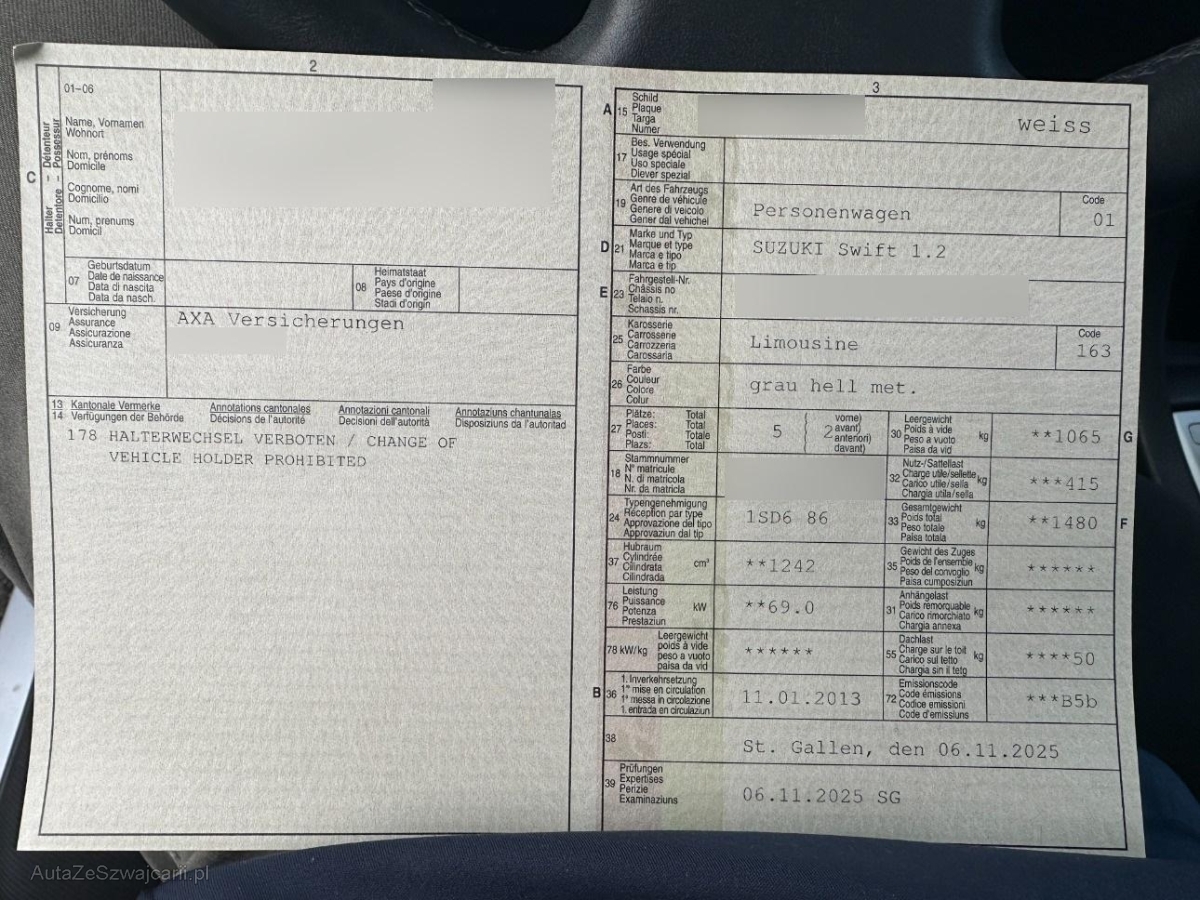 2
01-06
Name, Vornamen
Wohnort
Nom, prénoms
Domicile
Cognome, nomi
Domicilio
Num, prenums
Domicil
C
Halter – Détenteur
Detentore – Possessur
07
Geburtsdatum
Date de naissance
Data di nascita
Data da nasch.
08
Heimatstaat
Pays d'origine
Paese d'origine
Stadi d'origin
09
Versicherung
Assurance
Assicurazione
Assicuranza
AXA Versicherungen
13 Kantonale Vermerke Annotations cantonales Annotazioni cantonali Annotaziuns chantunalas
14 Verfügungen der Behörde Décisions de l'autorité Decisioni dell'autorità Disposiziuns da l'autoritad
178 HALTERWECHSEL VERBOTEN / CHANGE OF
VEHICLE HOLDER PROHIBITED
3
A 15
Schild
Plaque
Targa
Numer
weiss
17
Bes. Verwendung
Usage spécial
Uso speciale
Diever spezial
19
Art des Fahrzeugs
Genre de véhicule
Genere di veicolo
Gener dal vehichel
Personenwagen
Code
01
D 21
Marke und Typ
Marque et type
Marca e tipo
Marca e tip
SUZUKI Swift 1.2
E 23
Fahrgestell-Nr.
Châssis no
Telaio n.
Schassis nr.
25
Karosserie
Carrosserie
Carrozzeria
Carossaria
Limousine
Code
163
26
Farbe
Couleur
Colore
Colur
grau hell met.
27
Plätze: Total
Places: Total
Posti: Totale
Plazs: Total
5
2
vorne)
avant)
anteriori)
davant)
30
Leergewicht
Poids à vide
Peso a vuoto
Paisa da vid
kg
**1065
G
18
Stammnummer
N° matricule
N. di matricola
Nr. da matricla
32
Nutz-/Sattellast
Charge utile/sellette
Carico utile/sella
Chargia utila/sella
kg
***415
24
Typengenehmigung
Réception par type
Approvazione del tipo
Approvaziun dal tip
1SD6 86
33
Gesamtgewicht
Poids total
Peso totale
Paisa totala
kg
**1480
F
37
Hubraum
Cylindrée
Cilindrata
Cilindrada
cm³
**1242
35
Gewicht des Zuges
Poids de l'ensemble
Peso del convoglio
Paisa cumposiziun
kg
******
76
Leistung
Puissance
Potenza
Prestaziun
kW
**69.0
31
Anhängelast
Poids remorquable
Carico rimorchiato
Chargia annexa
kg
******
78 kW/kg
Leergewicht
poids à vide
peso a vuoto
paisa da vid
******
55
Dachlast
Charge sur le toit
Carico sul tetto
Chargia sin il tetg
kg
****50
B 36
1. Inverkehrsetzung
1re mise en circulation
1a messa in circolazione
1. entrada en circulaziun
11.01.2013
72
Emissionscode
Code émissions
Codice emissioni
Code d'emissiuns
***B5b
38
St. Gallen, den 06.11.2025
39
Prüfungen
Expertises
Perizie
Examinaziuns
06.11.2025 SG
AutaZeSzwajcarii.pl